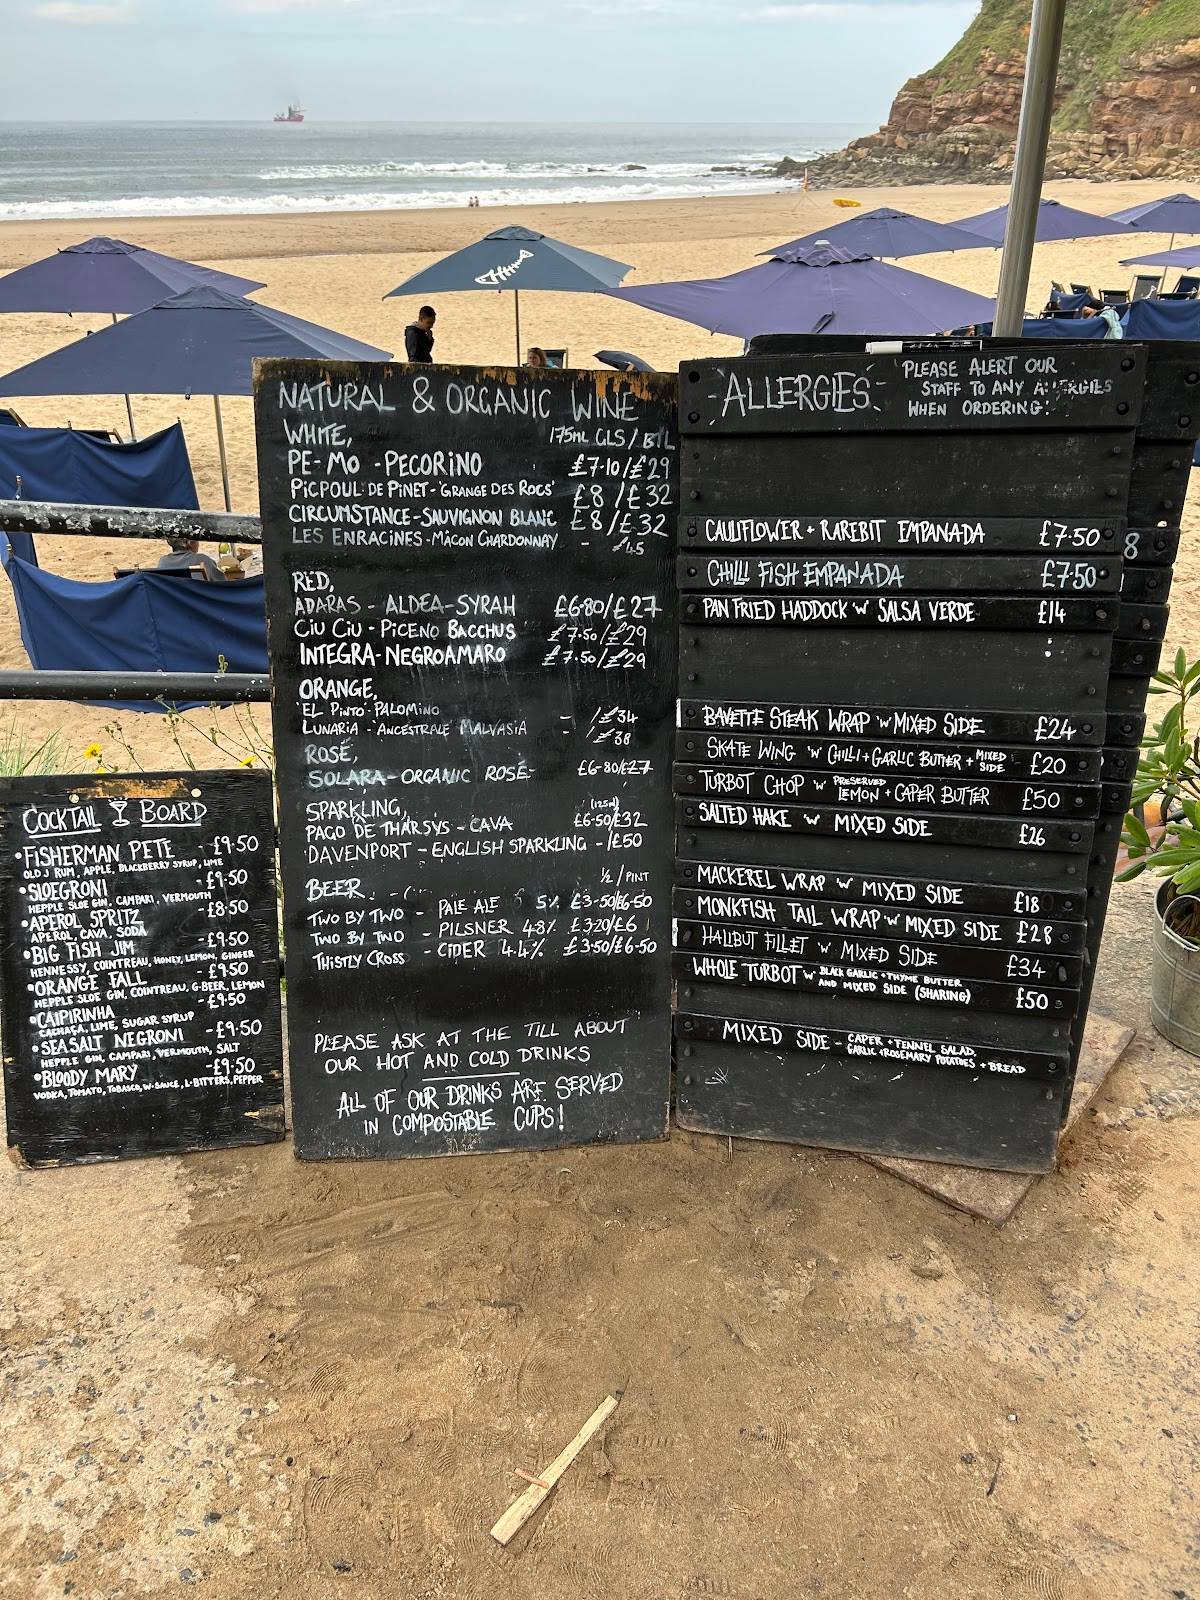 COCKTAIL BOARD
•FISHERMAN PETE - £9·50
OLD J RUM, APPLE, BLACKBERRY SYRUP, LIME
•SLOEGRONI - £9·50
HEPPLE SLOE GIN, CAMPARI, VERMOUTH
•APEROL SPRITZ - £8·50
APEROL, CAVA, SODA
•BIG FISH JIM - £9·50
HENNESSY, COINTREAU, HONEY, LEMON, GINGER
•ORANGE FALL - £9·50
HEPPLE SLOE GIN, COINTREAU, G·BEER, LEMON
•CAIPIRINHA - £9·50
CACHAÇA, LIME, SUGAR SYRUP
•SEASALT NEGRONI - £9·50
HEPPLE GIN, CAMPARI, VERMOUTH, SALT
•BLOODY MARY - £9·50
VODKA, TOMATO, TOBASCO, W·SAUCE, L·BITTERS, PEPPER
NATURAL & ORGANIC WINE
WHITE, 175ML GLS / BTL
PE-MO - PECORINO £7·10/£29
PICPOUL DE PINET - 'GRANGE DES ROCS' £8/£32
CIRCUMSTANCE - SAUVIGNON BLANC £8/£32
LES ENRACINES - MÂCON CHARDONNAY - £45
RED,
ADARAS - ALDEA - SYRAH £6·80/£27
CIU CIU - PICENO BACCHUS £7·50/£29
INTEGRA - NEGROAMARO £7·50/£29
ORANGE,
'EL PINTO' PALOMINO - /£34
LUNARIA - 'ANCESTRALE' MALVASIA - /£38
ROSÉ,
SOLARA - ORGANIC ROSÉ - £6·80/£27
SPARKLING, (125ml)
PAGO DE THARSYS - CAVA £6·50/£32
DAVENPORT - ENGLISH SPARKLING - /£50
BEER. 1/2 / PINT
TWO BY TWO - PALE ALE 5% £3·50/£6·50
TWO BY TWO - PILSNER 4.8% £3·20/£6
THISTLY CROSS - CIDER 4.4% £3·50/£6·50
PLEASE ASK AT THE TILL ABOUT
OUR HOT AND COLD DRINKS
ALL OF OUR DRINKS ARE SERVED
IN COMPOSTABLE CUPS!
- ALLERGIES - PLEASE ALERT OUR
STAFF TO ANY ALLERGIES
WHEN ORDERING!
CAULIFLOWER + RAREBIT EMPANADA £7·50
CHILLI FISH EMPANADA £7·50
PAN FRIED HADDOCK 'W' SALSA VERDE £14
BAVETTE STEAK WRAP 'W' MIXED SIDE £24
SKATE WING 'W' CHILLI + GARLIC BUTTER + MIXED SIDE £20
TURBOT CHOP 'W' PRESERVED LEMON + CAPER BUTTER £50
SALTED HAKE 'W' MIXED SIDE £26
MACKEREL WRAP 'W' MIXED SIDE £18
MONKFISH TAIL WRAP 'W' MIXED SIDE £28
HALIBUT FILLET 'W' MIXED SIDE £34
WHOLE TURBOT W BLACK GARLIC + THYME BUTTER AND MIXED SIDE (SHARING) £50
MIXED SIDE - CAPER + FENNEL SALAD, GARLIC + ROSEMARY POTATOES + BREAD
8